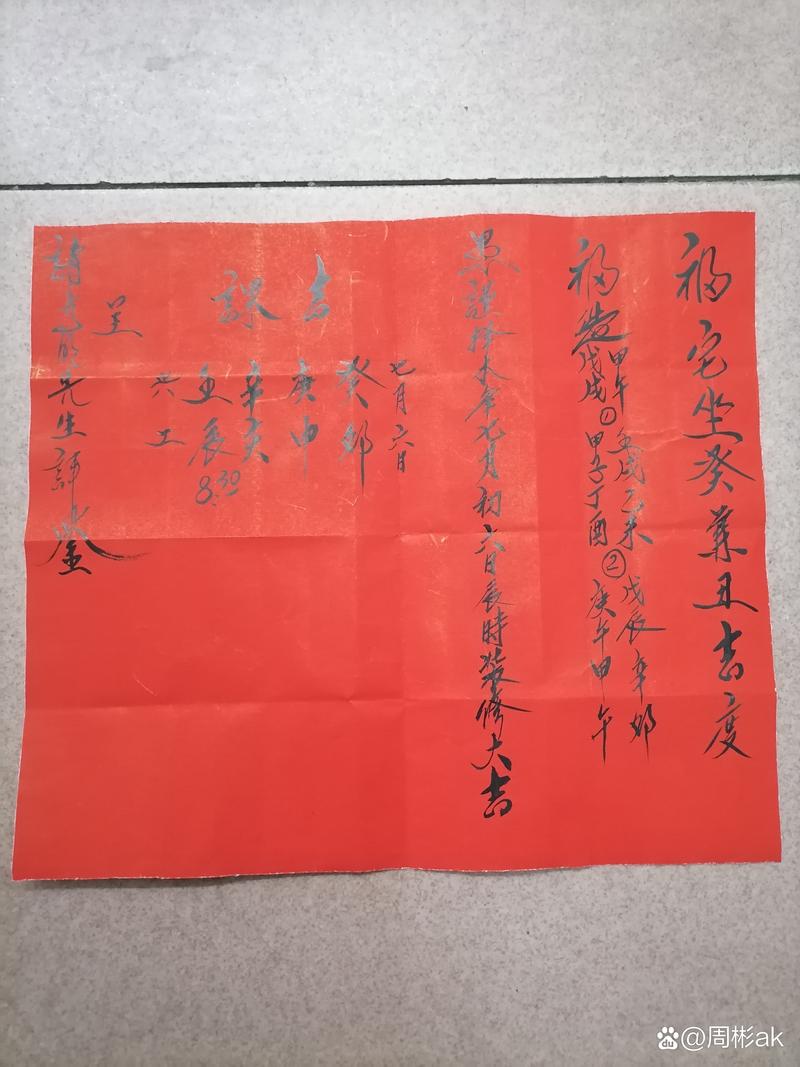 福宅坐癸兼丑吉度
福造
甲午 壬戌乙未 ② 戊辰辛卯
戊戌 ① 甲子丁酉 庚午甲午
謹择本年七月初六日辰時装修大吉
吉課
七月六日
癸卯
庚申
辛亥
壬辰
8:30
兴工
呈
先生評鉴
@周彬ak